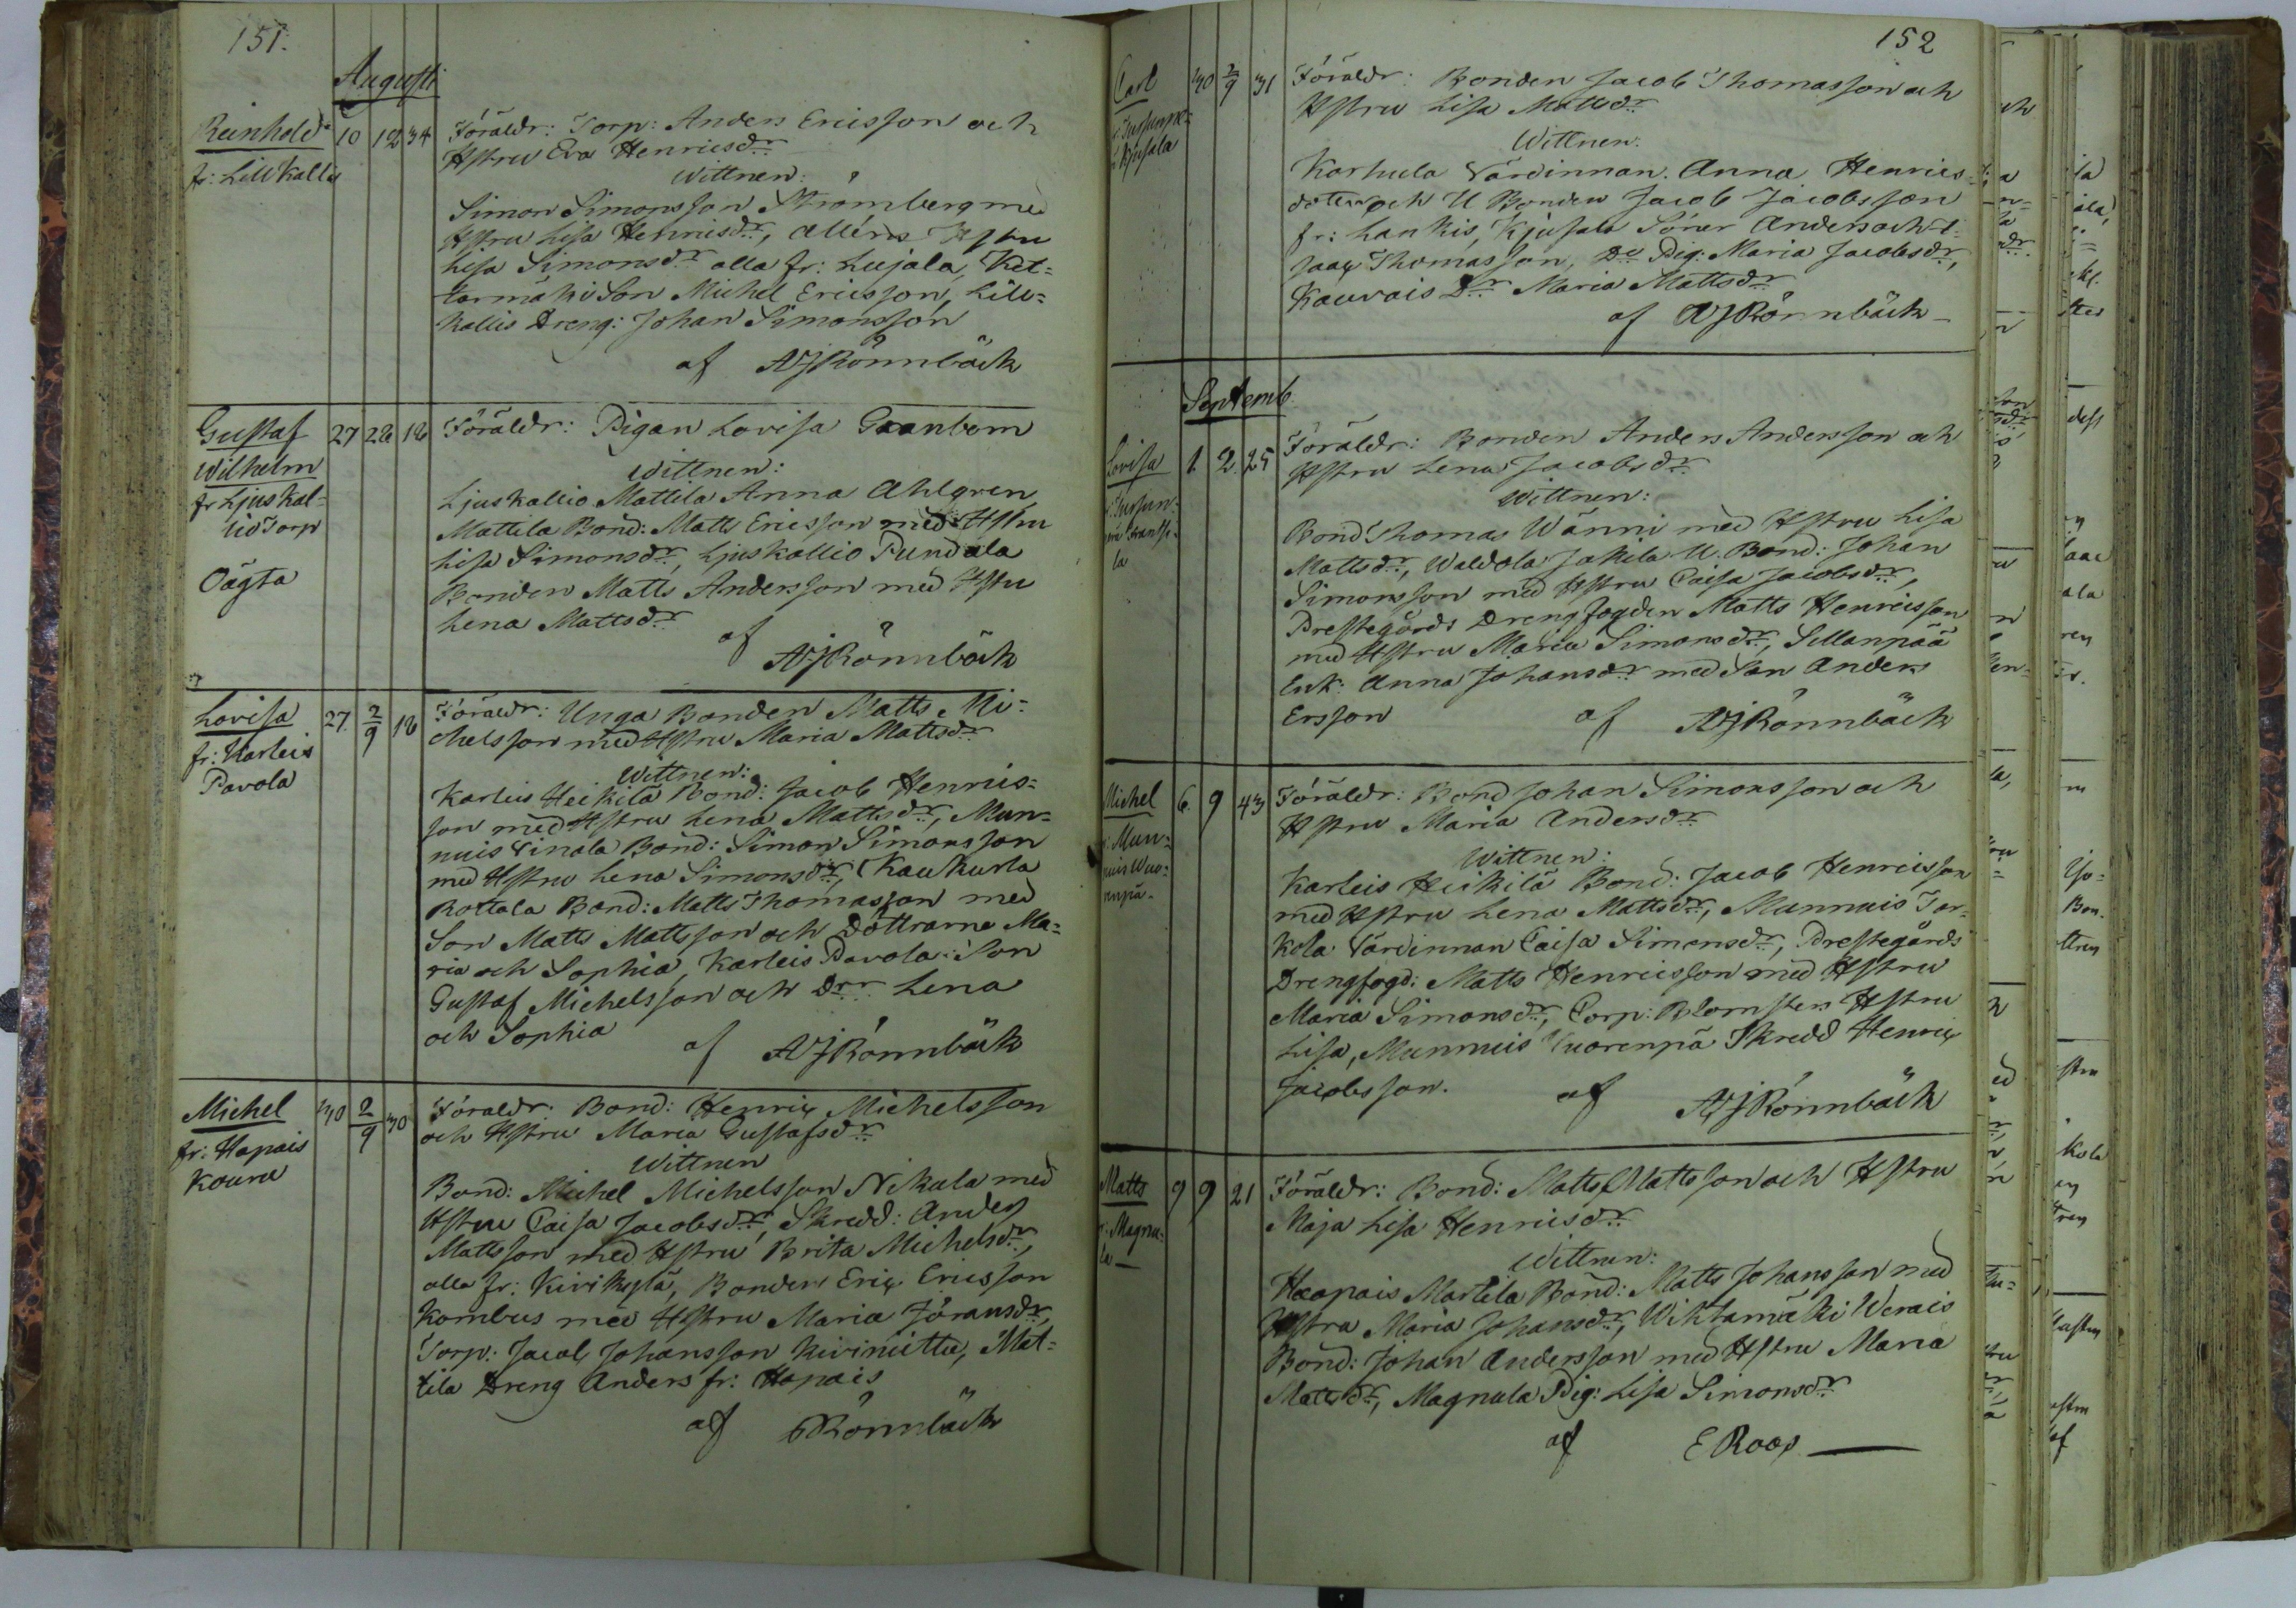 151.
Augusti
Reinhold 10 12 34 Föräldr: Torp: Anders Ericsson och
fr: Lill Kallis Hstru Eva Henricsdr
Wittnen:
Simon Simonsson Strömberg med
Hstru Lisa Henricsdr, Hstru
Lisa Simonsdr alla fr: Lujala, Ket=
tarmäki Son Michel Ericsson, Lill=
kallis Dreng: Johan Simonsson
af AJRönnbäck
Gustaf 27 28 18 Föräldr: Pigan Lovisa Granbom
Wilhelm
fr Ljuskal=
lio Torp
Oägta
Wittnen:
Ljuskallio Mattila Anna Ahlgren
Mattila Bond: Matts Ericsson med Hstru
Lisa Simonsdr, Ljuskallio Pundala
Bonden Matts Andersson med Hstru
Lena Mattsdr
af AJRönnbäck
Lovisa 27 2/9 18 Föräldr: Unga Bonden Matts Mi=
fr: Karleis chelsson med Hstru Maria Mattsdr
Pavola
Wittnen:
Karleis Heikilä Bond: Jacob Henrics=
son med Hstru Lena Mattsdr, Mun=
nuis Vinala Bond: Simon Simonsson
med Hstru Lena Simonsdr, Kaukurla
Rottala Bond: Matts Thomasson med
Son Matts Mattsson och Döttrarne Ma=
ria och Sophia, Karleis Pavola Son
Gustaf Michelsson och Drr Lena
och Sophia
af AJRönnbäck
Michel 30 2/9 30 Föräldr: Bond: Henric Michelsson
fr: Hapais och Hstru Maria Gustafsdr
Koura
Wittnen
Bond: Michel Michelsson Nikula med
Hstru Caisa Jacobsdr, Skredd: Anders
Mattsson med Hstru Brita Michelsdr,
alla fr: Kirikylä, Bonden Eric Ericsson
Kombus med Hstru Maria Göransdr,
Torp: Jacob Johansson Kiviniittu, Mat=
tila Dreng Anders fr: Hapais
af Rönnbäck
152
Carl 30 2/9 31 Föräldr: Bonden Jacob Thomasson och
Hstru Lisa Mattsdr
Kjusala
Wittnen:
Karhula Värdinnan Anna Henrics=
dotter och U Bonden Jacob Jacobsson
fr: Lankis, Kjusala Söner Anders och I=
saac Thomasson, Do Pig: Maria Jacobsdr,
Kauvais Dr Maria Mattsdr
af AJRönnbäck
Septemb
Lovisa 1 2 25 Föräldr: Bonden Anders Andersson och
Hstru Lena Jacobsdr
Wittnen:
Bond Thomas Wänni med Hstru Lisa
Mattsdr, Waldola Jakila U. Bond: Johan
Simonsson med Hstru Caisa Jacobsdr,
Prestegårds Drengfogden Matts Henricsson
med Hstru Maria Simonsdr, Sillanpää
Enk: Anna Johansdr med Son Anders
Ersson af AJRönnbäck
Michel 6 9 43 Föräldr: Bond Johan Simonsson och
fr: Mun= Hstru Maria Andersdr
nuis Wuo=
renpä
Wittnen:
Karleis Heikilä Bond: Jacob Henricsson
med Hstru Lena Mattsdr, Munnuis Tor=
kola Värdinnan Caisa Simonsdr, Prestegårds
Drengfogd: Matts Henricsson med Hstru
Maria Simonsdr, Corp: Blomster Hstru
Lisa, Munnuis Vuorenpä Skredd Henric
Jacobsson. af AJRönnbäck
Matts 9 9 21 Föräldr: Bond: Matts Mattsson och Hstru
fr: Magnu= Maja Lisa Henricsdr
la
Wittnen:
Haapais Martila Bond: Matts Johansson med
Hstru Maria Johansdr, Wihtamäki Werais
Bond: Johan Andersson med Hstru Maria
Mattsdr, Magnula Pig: Lisa Simonsdr
af E Roos